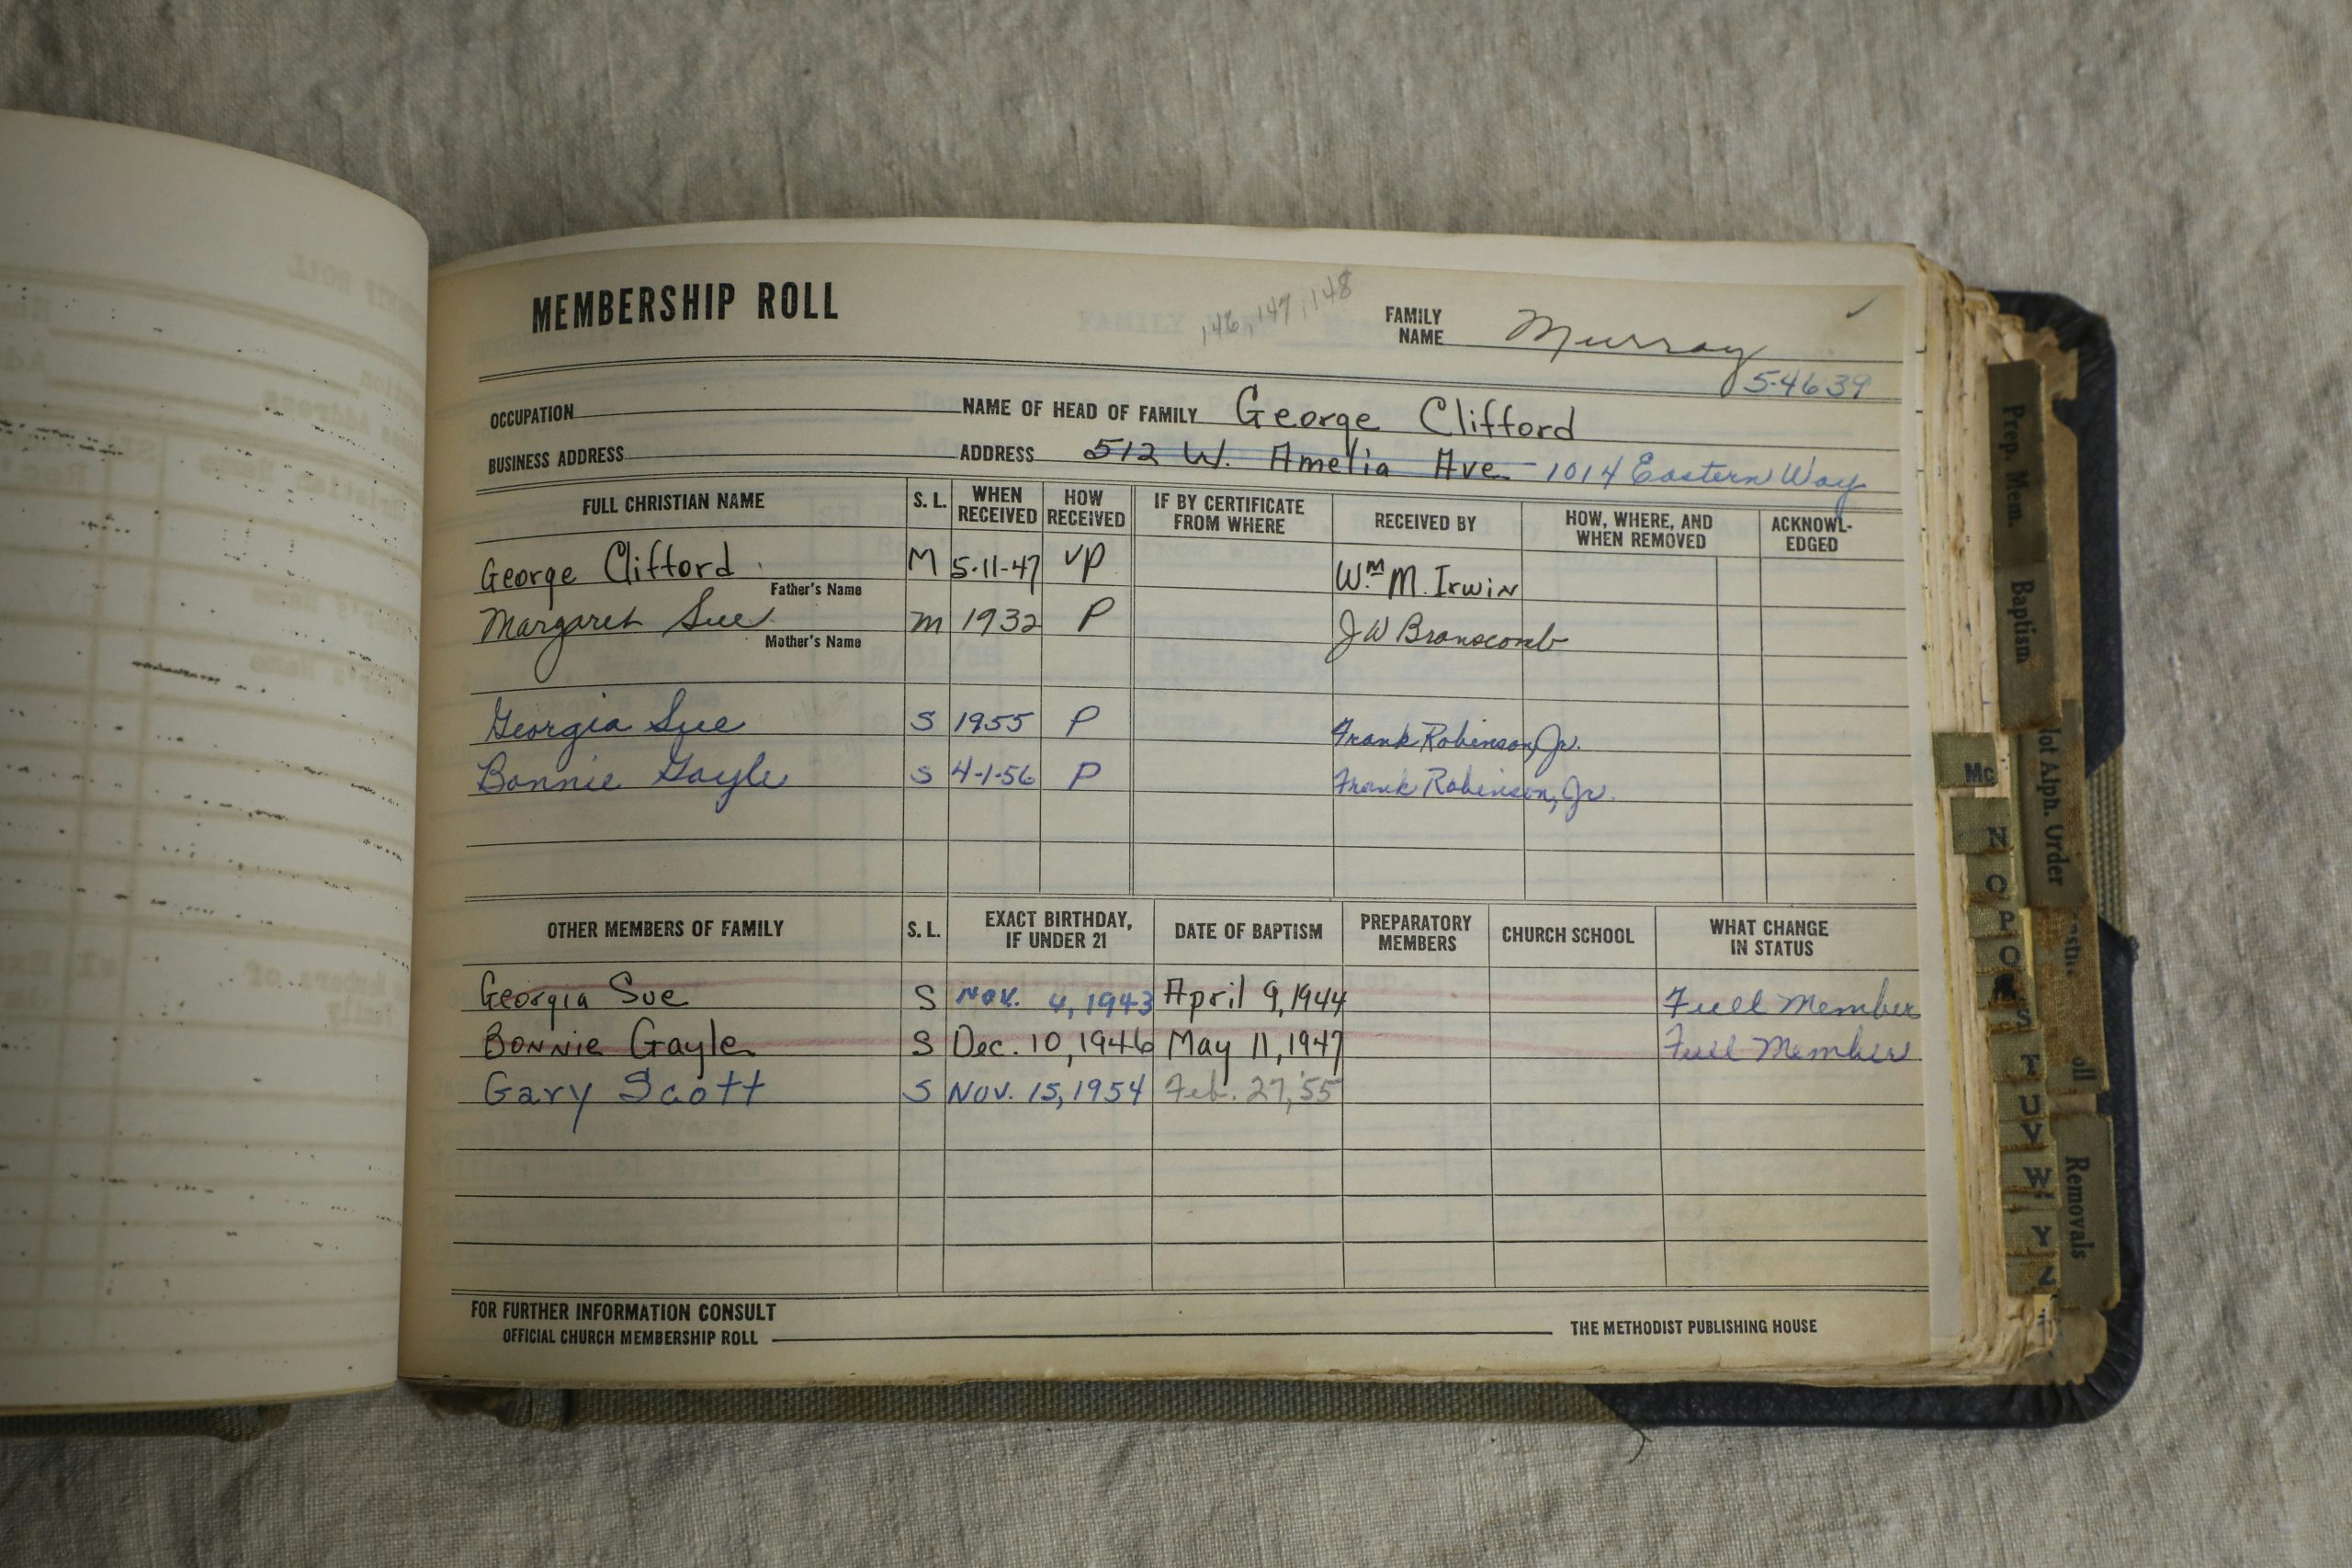 MEMBERSHIP ROLL
146, 147, 148
FAMILY NAME Murray
5-4639
OCCUPATION NAME OF HEAD OF FAMILY George Clifford
BUSINESS ADDRESS ADDRESS 512 W. Amelia Ave. 1014 Eastern Way
FULL CHRISTIAN NAME S. L. WHEN RECEIVED HOW RECEIVED IF BY CERTIFICATE FROM WHERE RECEIVED BY HOW, WHERE, AND WHEN REMOVED ACKNOWL-EDGED
George Clifford M 5-11-47 VP Wm M. Irwin
Father's Name
Margaret Sue M 1932 P J W Branscomb
Mother's Name
Georgia Sue S 1955 P Frank Robinson, Jr.
Bonnie Gayle S 4-1-56 P Frank Robinson, Jr.
OTHER MEMBERS OF FAMILY S. L. EXACT BIRTHDAY, IF UNDER 21 DATE OF BAPTISM PREPARATORY MEMBERS CHURCH SCHOOL WHAT CHANGE IN STATUS
Georgia Sue S Nov. 4, 1943 April 9, 1944 Full Member
Bonnie Gayle S Dec. 10, 1946 May 11, 1947 Full Member
Gary Scott S Nov. 15, 1954 Feb. 27, '55
FOR FURTHER INFORMATION CONSULT
OFFICIAL CHURCH MEMBERSHIP ROLL THE METHODIST PUBLISHING HOUSE
Prep. Mem.
Baptism
Not Alph. Order
Removals
Mc
N
O
P
Q
S
T
U
V
W
Y
Z